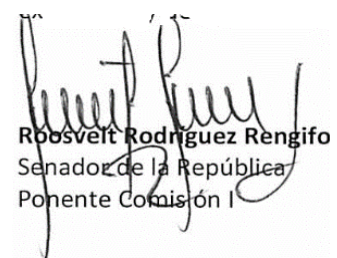 Roosvelt Rodríguez Rengifo
Senador de la República
Ponente Comisión I